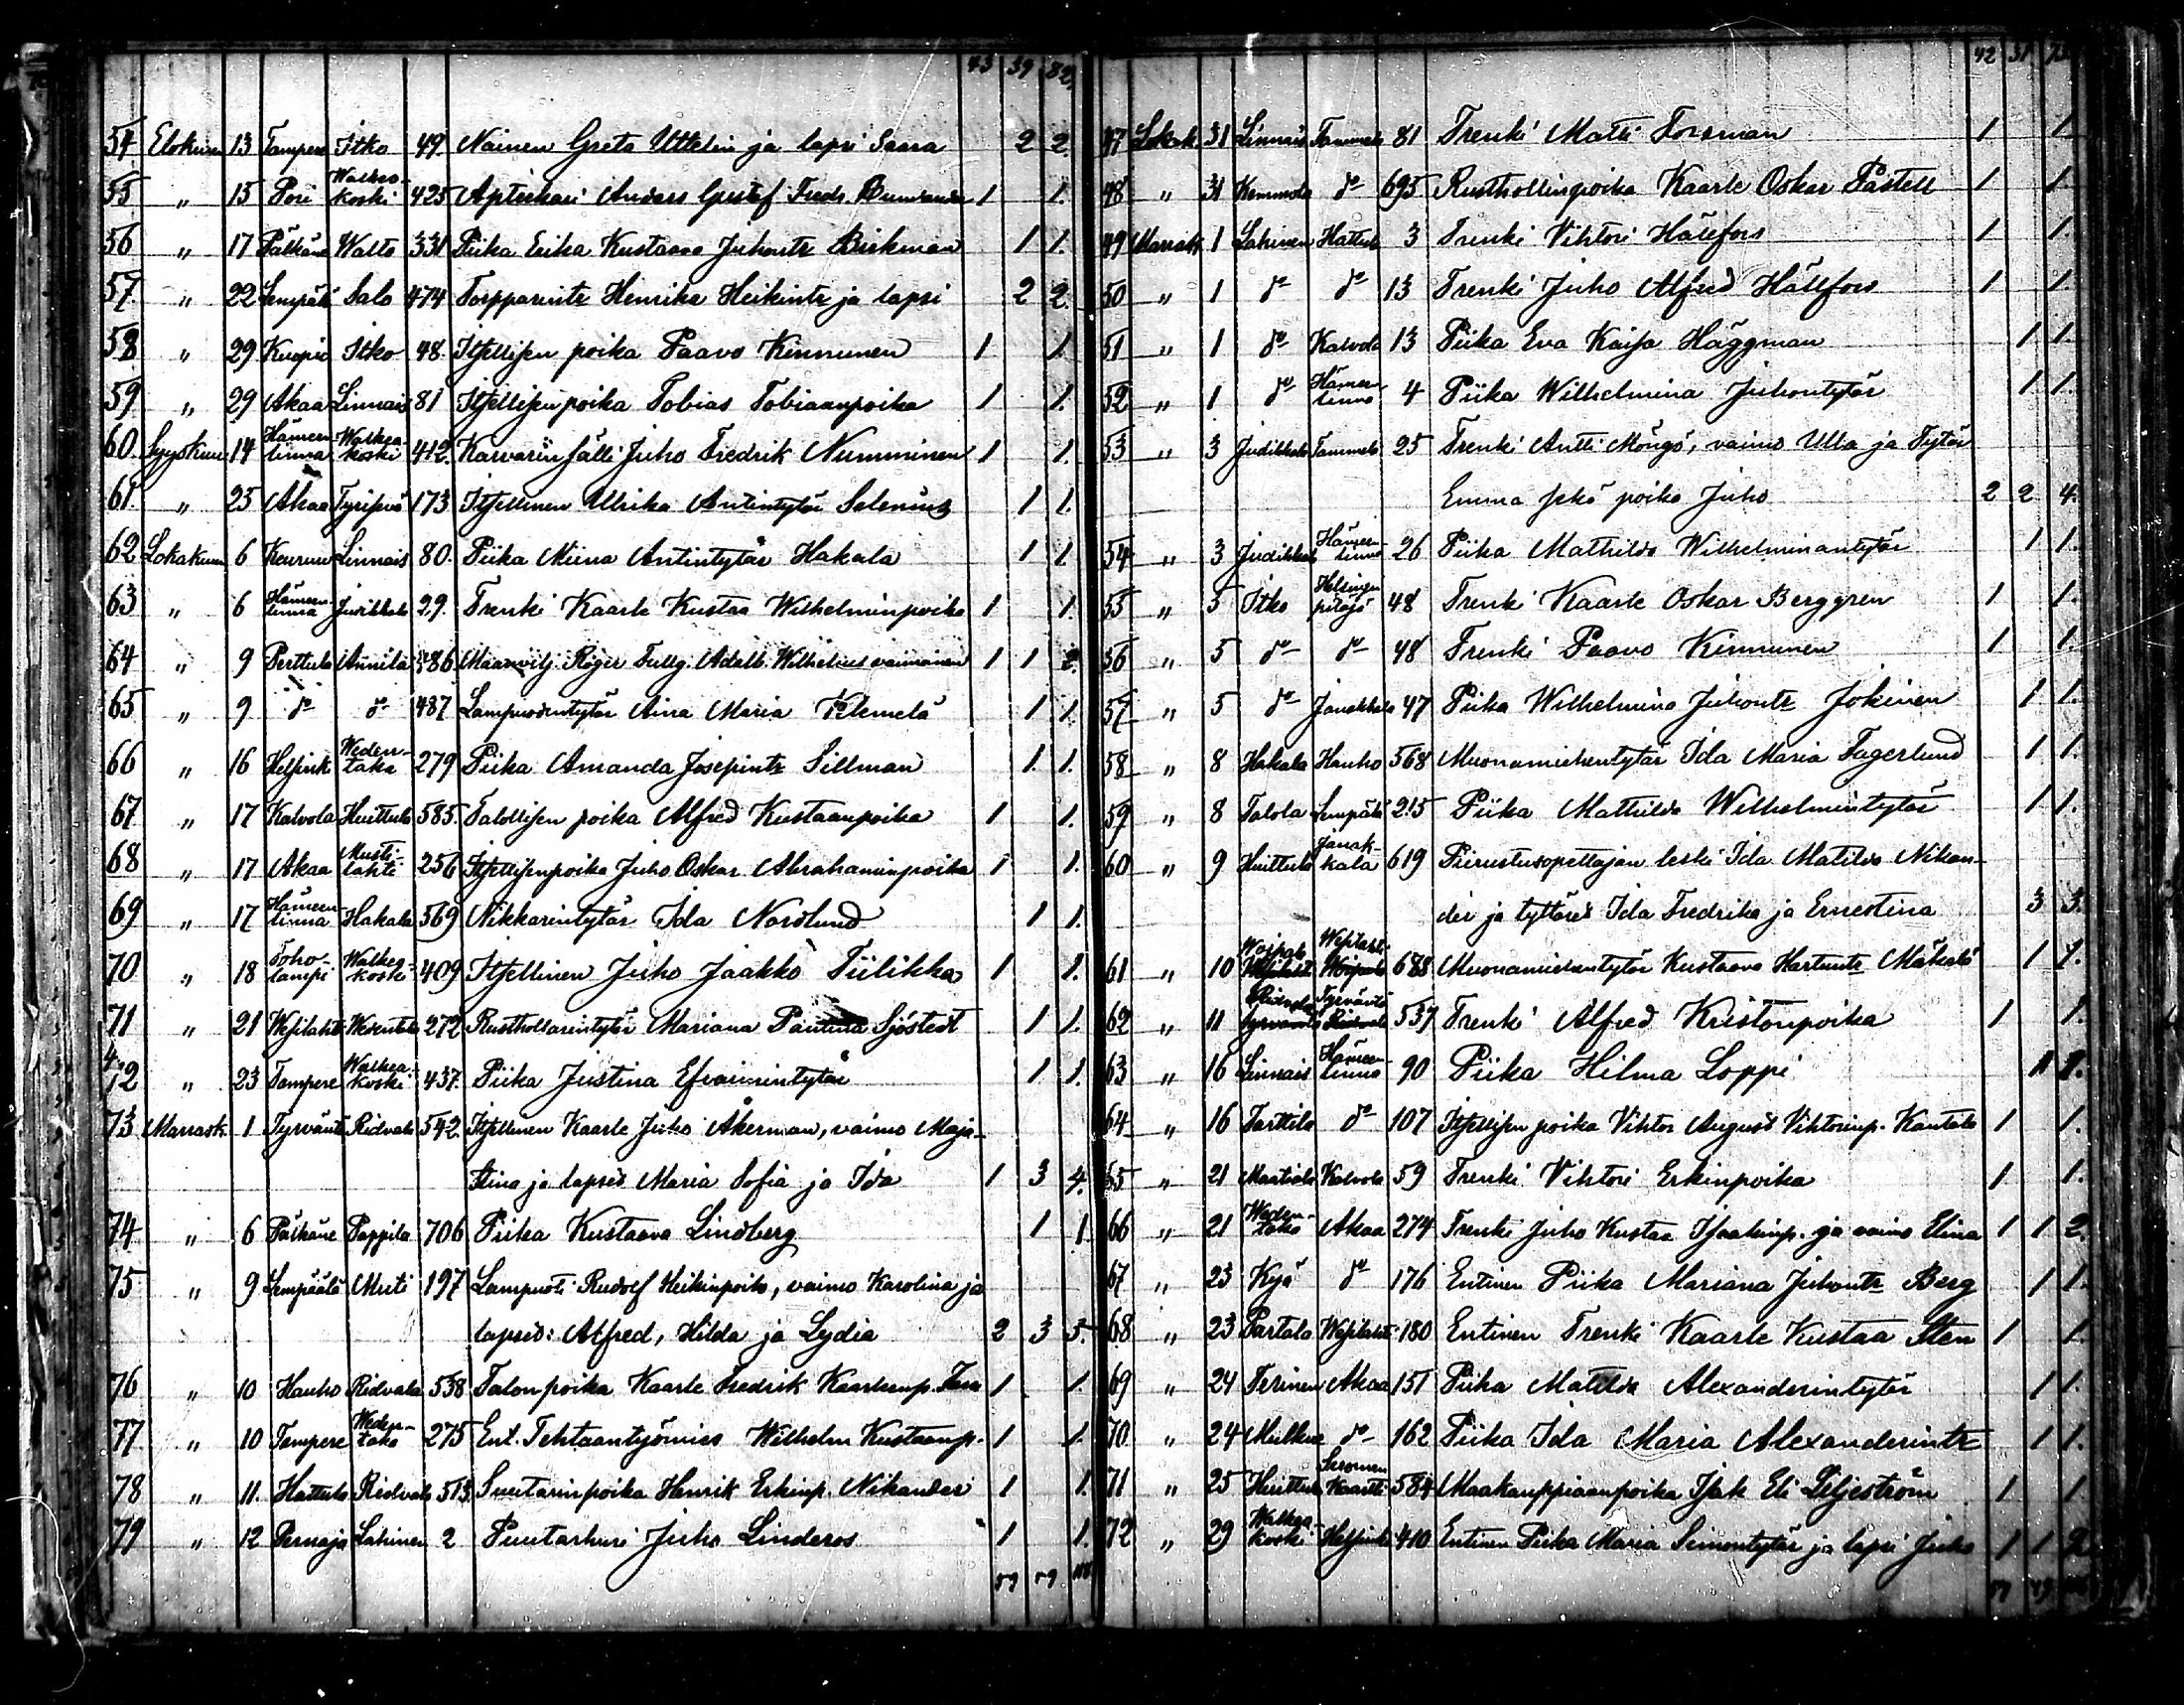 43 39 82
54 Elokuun 13 Tampere Itko 49. Nainen Greta Uttelin ja lapsi Saara 2 2.
55 " 15 Pori Walkea-koski 425 Apteekari Anders Gustaf Fredr. 1 1.
56 " 17 Pälkäne Walto 331 Piika Erika Kustaava Juhontr Birkman 1 1.
57. " 22 Lempäälä Salo 474 Torpparintr Henrika Heikintr ja lapsi 2 2.
58 " 29 Kuopio Itko 48. Itsellisen poika Paavo Kinnunen 1 1.
59 " 29 Akaa Linnais 81 Itsellisen poika Tobias Tobiaanpoika 1 1.
60. Syyskuu 14 Hämeen-linna Walkea-koski 412. Karvarin sälli Juho Fredrik Numminen 1 1.
61. " 25 Akaa 173 Itsellinen Ulrika Antintytär Selenius 1 1.
62 Lokakuun 6 Keuruu Linnais 80. Piika Miina Antintytär Hakala 1 1.
63 " 6 Hämeen-linna Judikkala 29. Trenki Kaarle Kustaa Wilhelminpoika 1 1.
64 " 9 Perttula Annila 486 Maanvilj. Roger Fullg. Adalb. Wilhelius vaimoinen 1 1 2.
65 " 9 do do 487 Lampuodintytär Aina Maria Klemelä 1 1.
66 " 16 Helsink Weden-taka 279 Piika Amanda Josepintr Sillman 1. 1.
67. " 17 Kalvola Huittula 585. Talollisen poika Alfred Kustaanpoika 1 1.
68 " 17 Akaa Musti-lahti 256 Itsellisenpoika Juho Oskar Abrahaminpoika 1 1.
69 " 17 Hämeen-linna Hakala 569 Nikkarintytär Ida Nordlund 1 1.
70 " 18 Toho-lampi Walkea-koski 409 Itsellinen Juho Jaakko Tiilikka 1 1.
71 " 21 Wesilaht Wedentaka 272 Rusthollarintytär Mariana Sjöstedt 1 1.
72 " 23 Tampere Walkea-koski 437. Piika Justina Efraimintytär 1 1.
73 Marrask. 1 Tyrväntö Ridvala 542. Itsellinen Kaarle Juho Åkerman, vaimo Maja-
Stina ja lapset Maria Sofia ja Ida 1 3 4.
74 " 6 Pälkäne Pappila 706 Piika Kustaava Lindberg 1 1
75 " 9 Lempäälä Uuti 197 Lampuoti Rudolf Heikinpoika, vaimo Karolina ja
lapset: Alfred, Hilda ja Lydia 2 3 5.
76 " 10 Hauho Ridvala 538 Talonpoika Kaarle Fredrik Kaarlenp. 1 1.
77. " 10 Tampere Weden-taka 275 Ent. Tehtaantyömies Wilhelm Kustaanp. 1 1.
78 " 11. Hattula Ridvala 513. Suutarinpoika Henrik Erkinp. Nikander 1 1.
79 " 12 Pernaja Lahinen 2 Puutarhuri Juho Linderos 1 1.
59 59 118
42 31 73
47 Lokak. 31 Linnais Tammela 81 Trenki Matti Forsman 1 1.
48 " 31 Kemmola do 695 Rusthollinpoika Kaarle Oskar Påstell 1 1.
49 Marrask. 1 Lahinen Hattula 3 Trenki Vihtori Hällfors 1 1.
50 " 1 do do 13 Trenki Juho Alfred Hällfors 1 1.
51 " 1 do Kalvola 13 Piika Eva Kaisa Häggman 1 1.
52 " 1 do Hämeen-linna 4 Piika Wilhelmina Juhontytär 1 1.
53 " 3 Judikkala Tammela 25 Trenki Antti Möngö, vaimo Ulla ja Tytär
Emma sekä poika Juho 2 2 4.
54 " 3 Judikkala Hämeen-linna 26 Piika Mathilda Wilhelminantytär 1 1.
55 " 5 Itko Helsingin pitäjä 48 Trenki Kaarle Oskar Berggren 1 1.
56 " 5 do do 48 Trenki Paavo Kinnunen 1 1.
57 " 5 do Janakkala 47 Piika Wilhelmina Juhontr Jokinen 1 1.
58 " 8 Hakala Hauho 568 Muonamiehentytär Ida Maria Fagerlund 1 1.
59 " 8 Talola Lempäälä 215 Piika Mathilda Wilhelmintytär 1 1.
60 " 9 Huittula Janak-kala 619 Piirustusopettajan leski Ida Matilda Nikan-
der ja tyttäret Ida Fredrika ja Ernestina 3 3.
61 " 10 Woipala Wesilahti 688 Muonamiehentytär Kustaava Mäkelä 1 1.
62 " 11 Ridvala Tyrväntö 537 Trenki Alfred Kristonpoika 1 1.
63 " 16 Linnais Hämeen-linna 90 Piika Hilma Loppi 1 1.
64 " 16 Tarttila do 107 Itsellisen poika Vihtor August Vihtorinp. Kantala 1 1.
65 " 21 Maatiala Kalvola 59 Trenki Vihtori Erkinpoika 1 1.
66 " 21 Weden-taka Akaa 274 Trenki Juho Kustaa Isaakinp. ja vaimo Elina 1 1 2.
67 " 23 Kyjä do 176 Entinen Piika Mariana Juhontr Berg 1 1.
68 " 23 Partala Wesilahti 180 Entinen Trenki Kaarle Kustaa Sten 1 1
69 " 24 Terinen Akaa 151 Piika Matilda Alexanderintytär 1 1.
70 " 24 Mälkiä do 162 Piika Ida Maria Alexanderintr 1 1.
71 " 25 Huittula Kaartti 584 Maakauppiaanpoika Isak Eli Liljeström 1 1
72 " 29 Walkea-koski Helsinki 410 Entinen Piika Maria Simontytär ja lapsi Juho 1 1 2